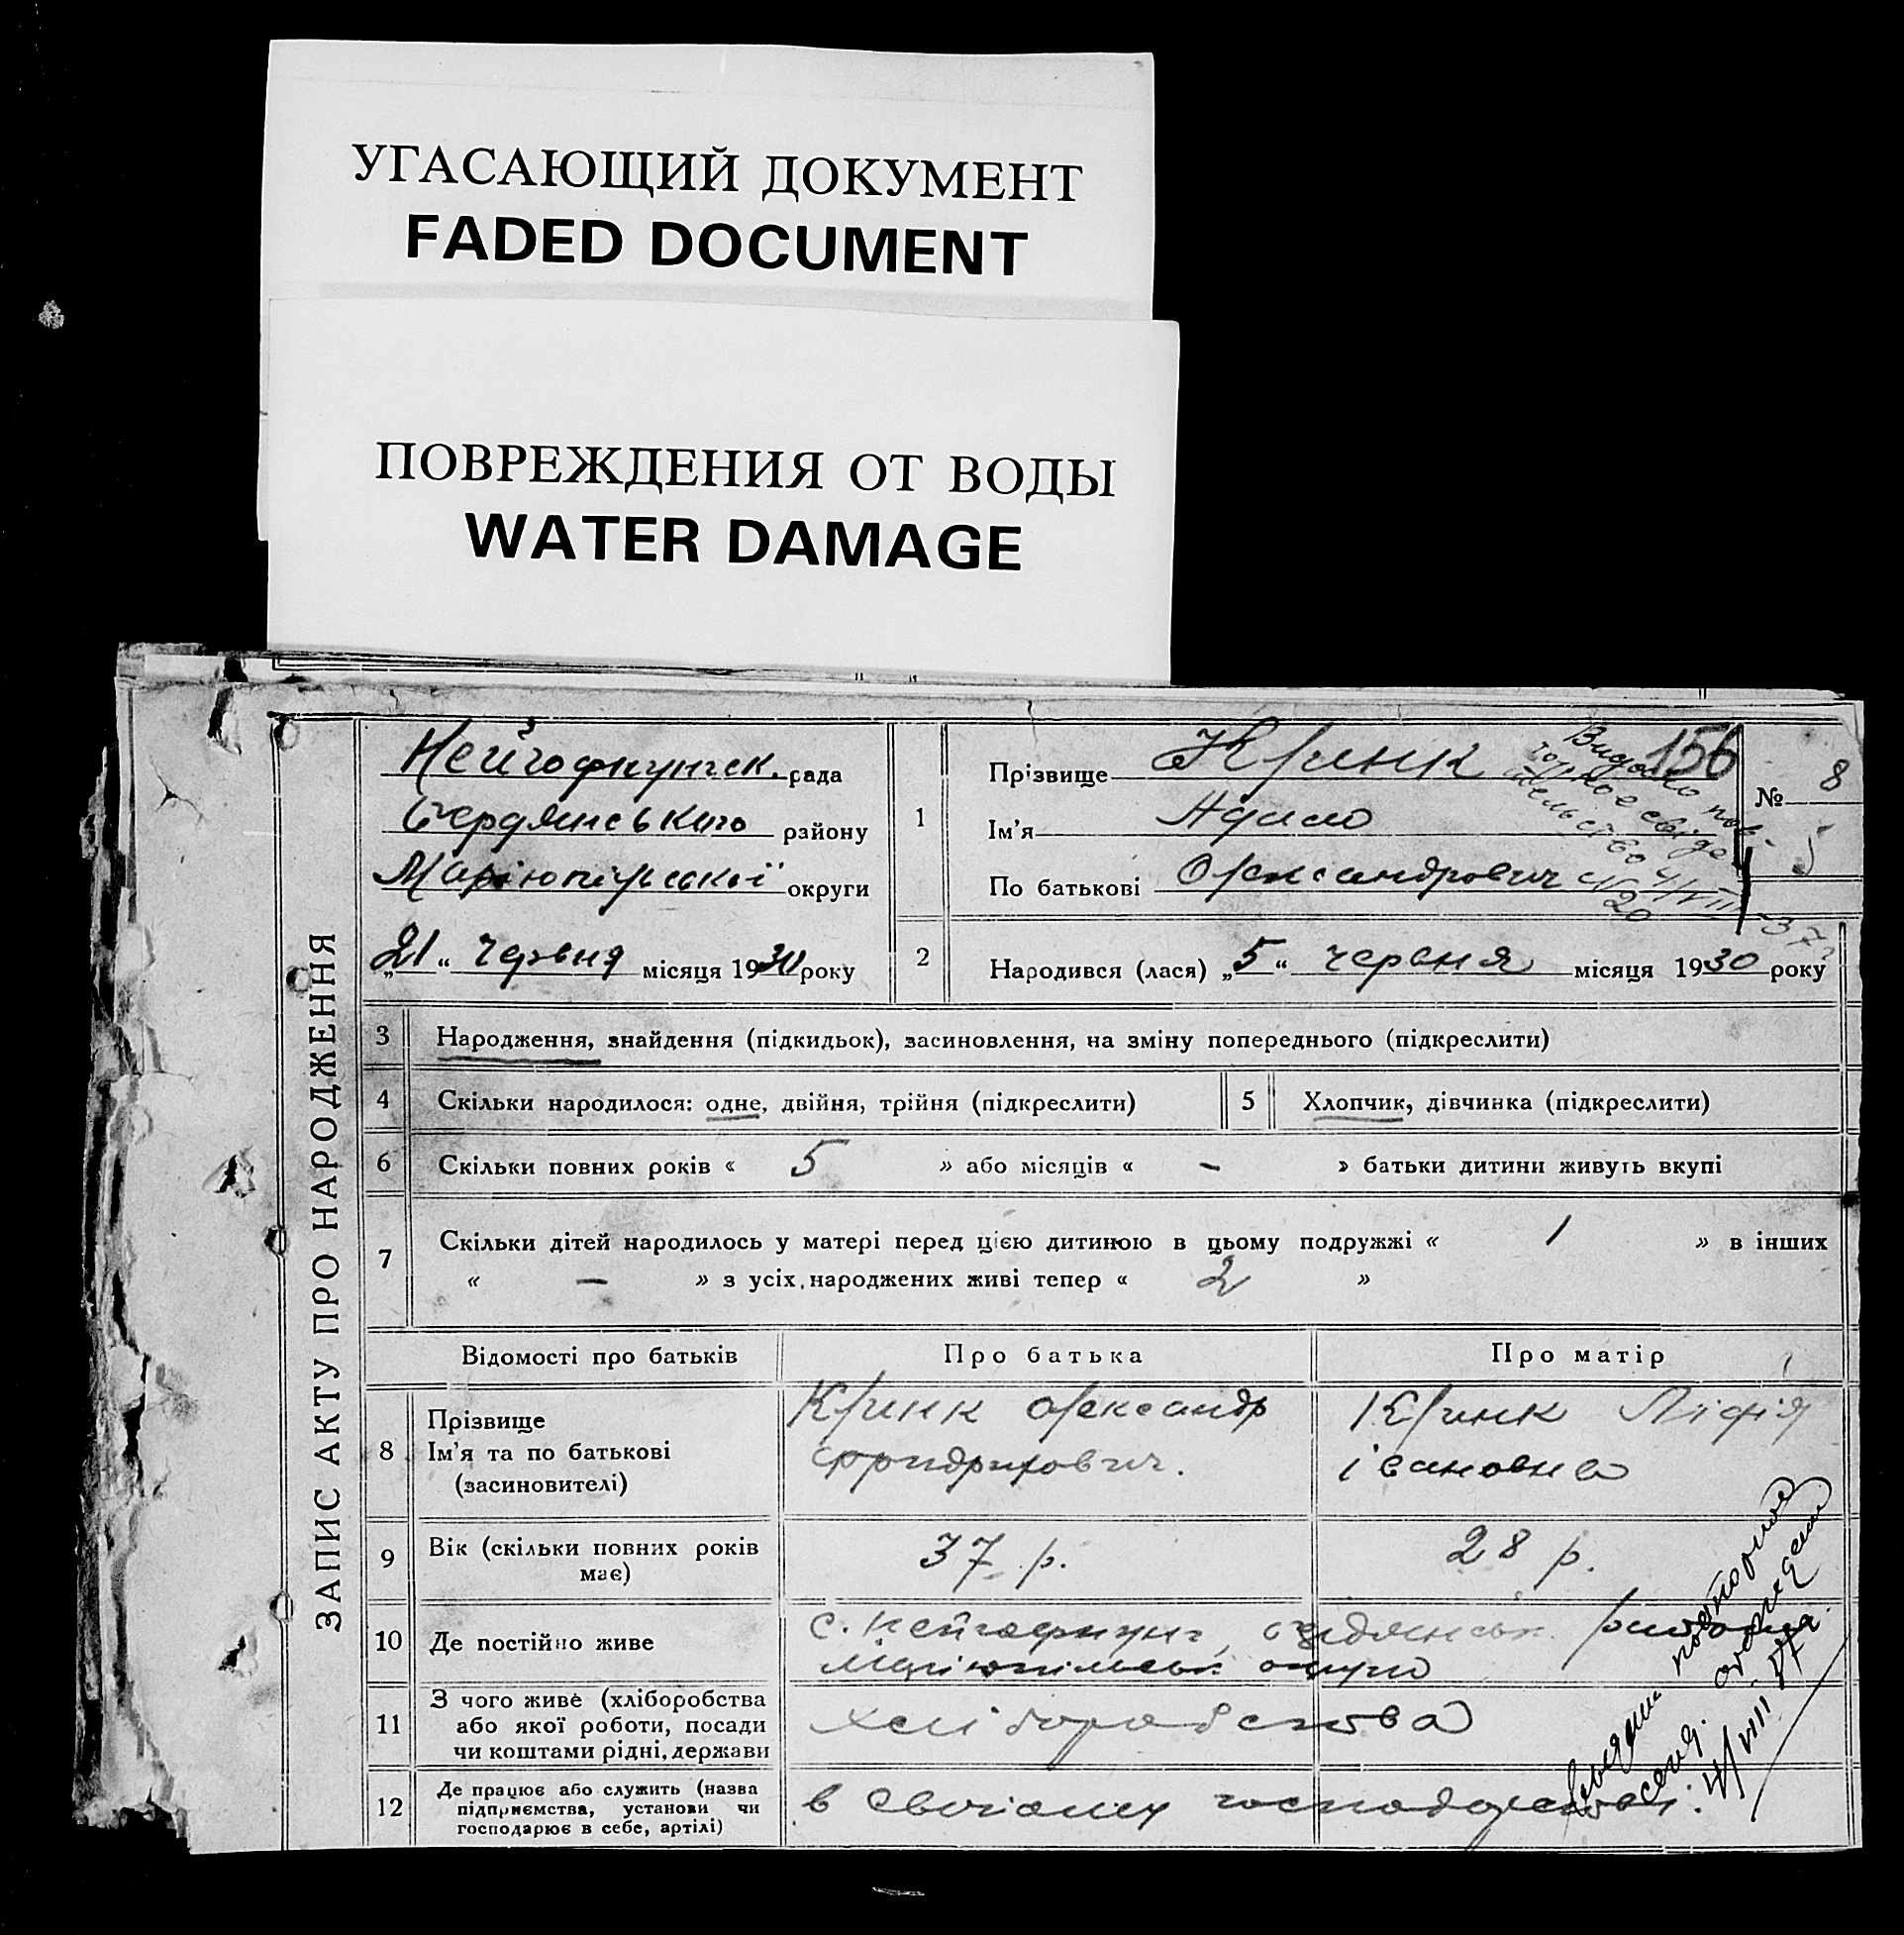 УГАСАЮЩИЙ ДОКУМЕНТ
FADED DOCUMENT
ПОВРЕЖДЕНИЯ ОТ ВОДЫ
WATER DAMAGE
ЗАПИС АКТУ ПРО НАРОДЖЕННЯ
рада
Бердянського району
Маріюпільської округи
„21“ червня місяця 1930 року
1
Прізвище
Ім'я
По батькові Олександрович
156
№ 8
5
2
Народився (лася) „5“ червня місяця 1930 року
3 Народження, знайдення (підкидьок), засиновлення, на зміну попереднього (підкреслити)
4 Скільки народилося: одне, двійня, трійня (підкреслити) 5 Хлопчик, дівчинка (підкреслити)
6 Скільки повних років « 5 » або місяців « - » батьки дитини живуть вкупі
7 Скільки дітей народилось у матері перед цією дитиною в цьому подружжі « 1 » в інших
« — » з усіх народжених живі тепер « 2 »
Відомості про батьків Про батька Про матір
8 Прізвище
Ім'я та по батькові
(засиновителі)
Олександр
Фридрихович.
івановна
9 Вік (скільки повних років
має)
37 р. 28 р.
10 Де постійно живе
с.
Маріюпільськ округи
11 З чого живе (хліборобства
або якої роботи, посади
чи коштами рідні, держави
хліборобства
12 Де працює або служить (назва
підприємства, установи чи
господарює в себе, артілі)
в своіому господарстві.